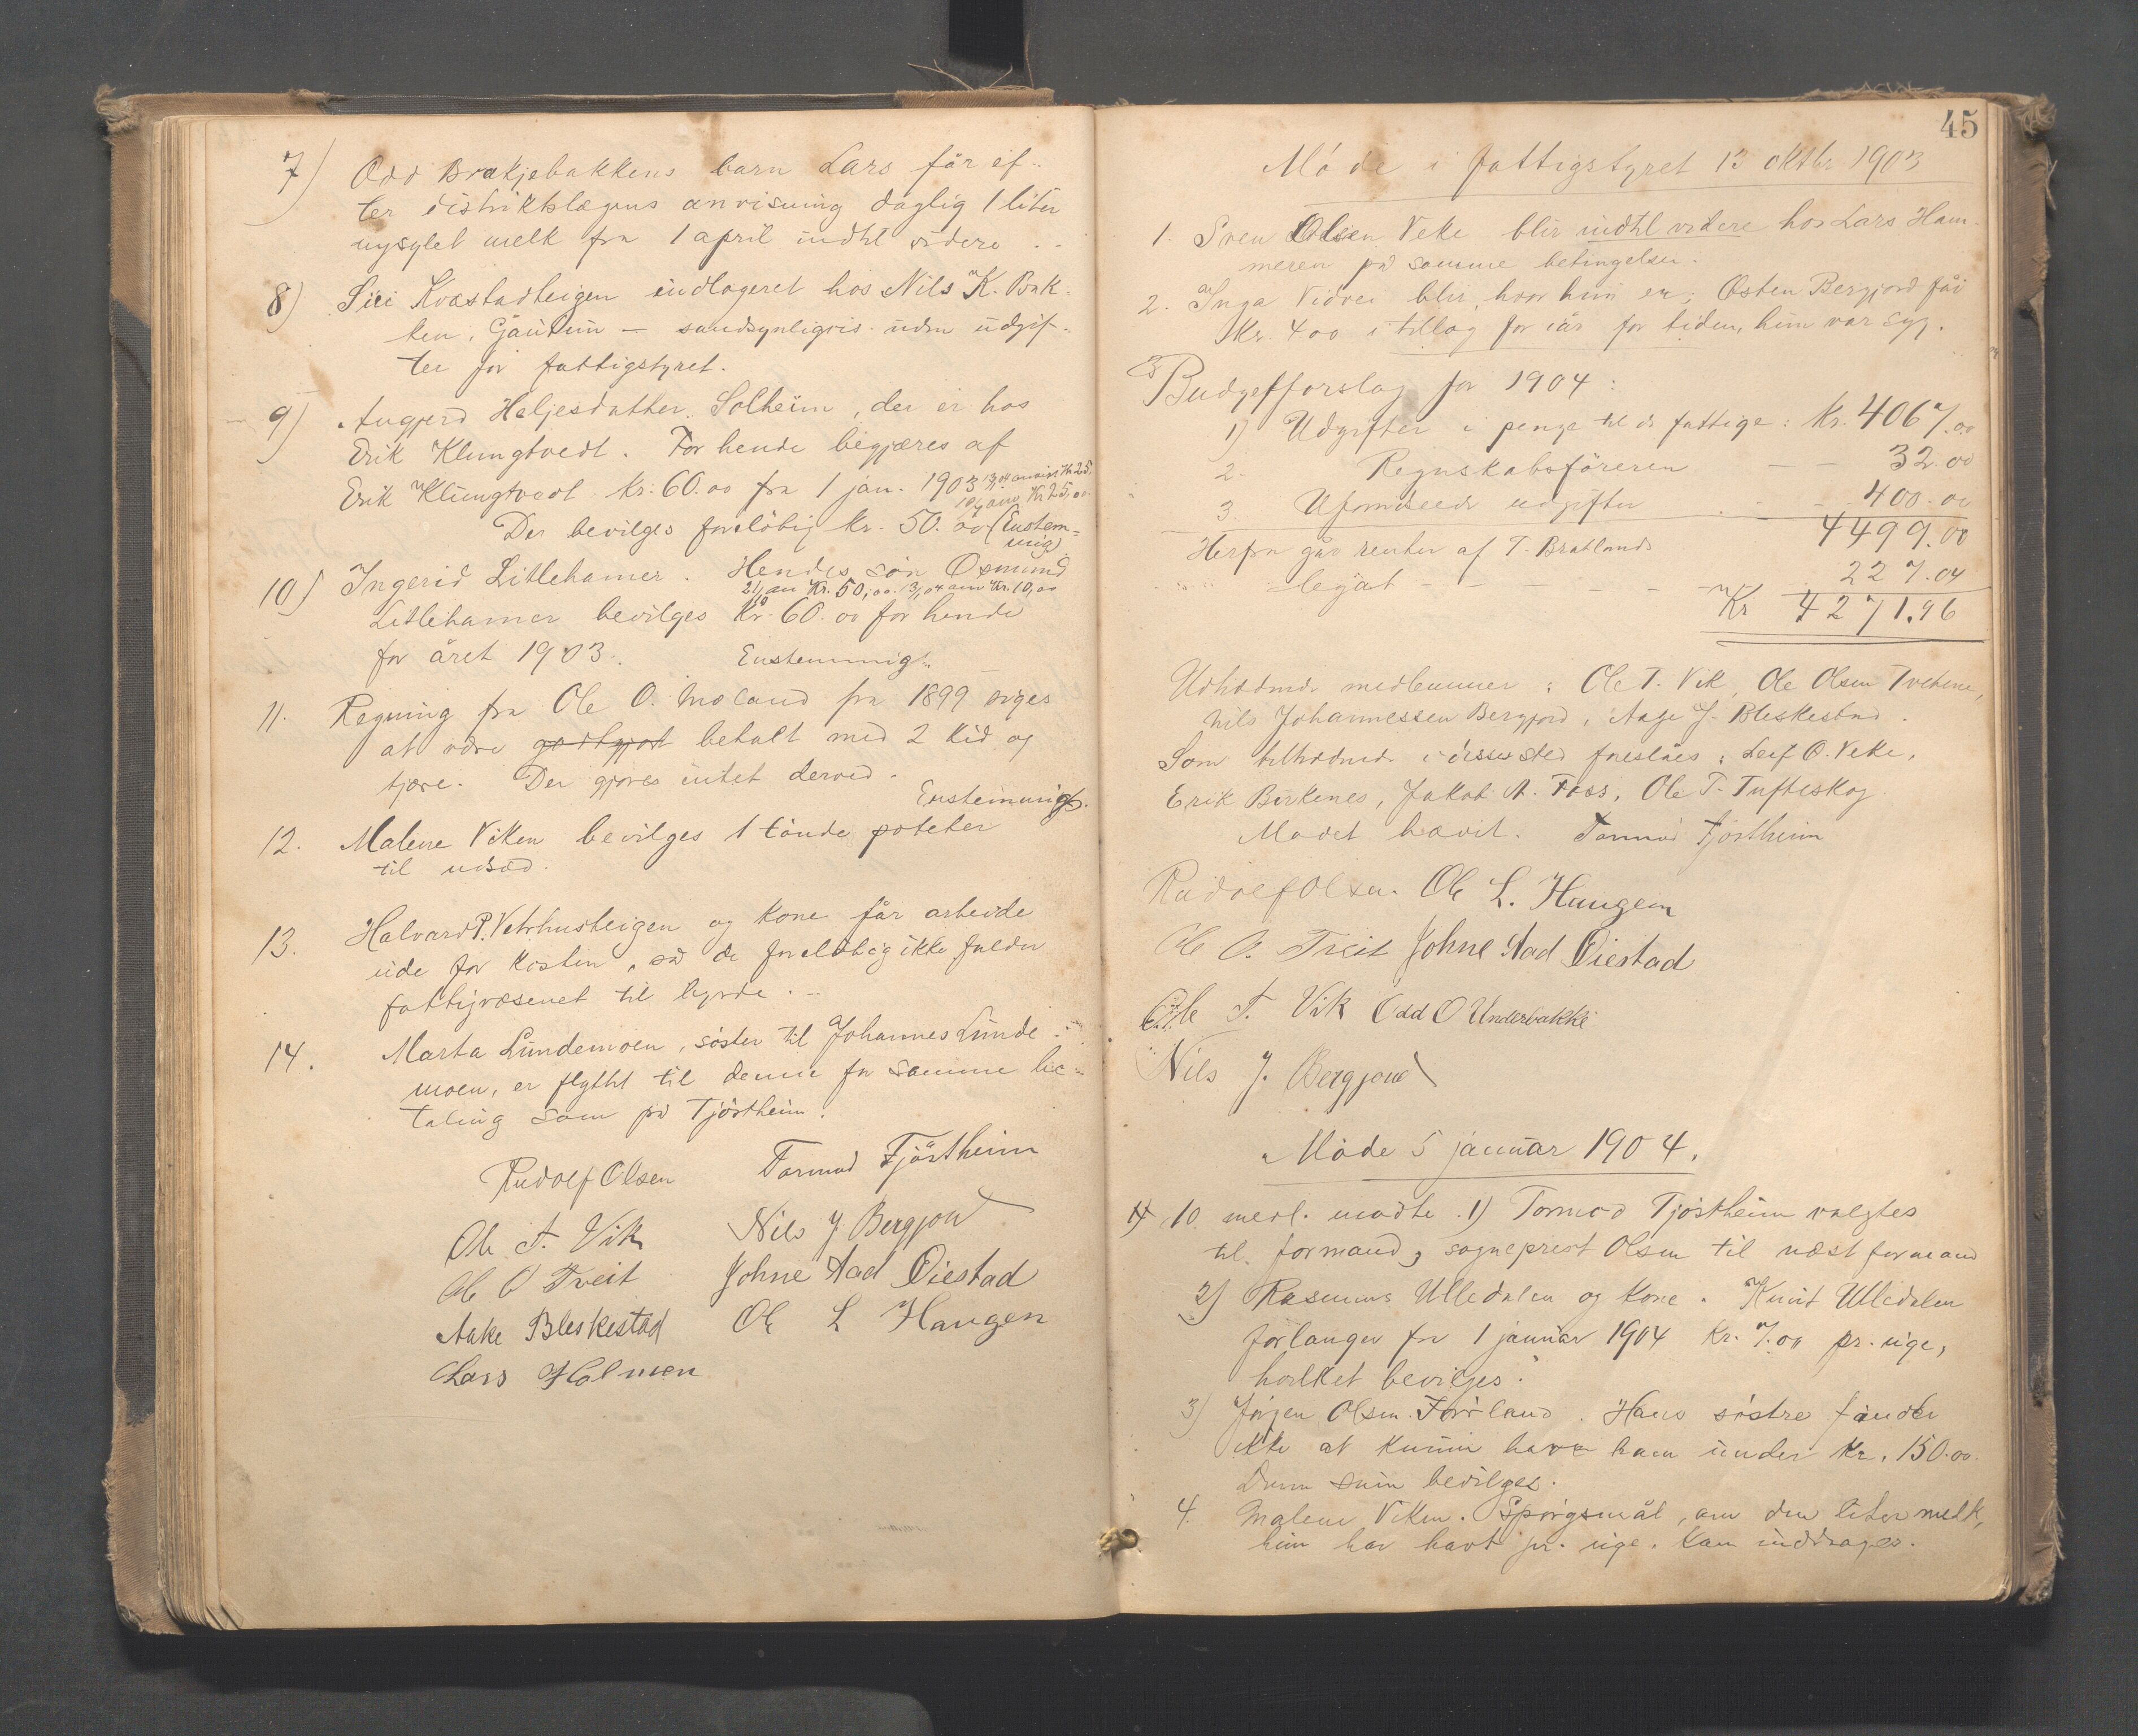 7) Odd Brækjebakkens barn Lars får ef-
ter distriktslægens anvisning daglig 1 liter
nysylet melk fra 1 april indtil videre . -
8) Siri Kvæstadteigen indlogeret hos Nils K. Bak-
ken, Gautun — sandsynligvis uden udgif-
ter for fattigstyret.
9) Angjerd Heljesdatter Solheim, der er hos
Erik Klungtvedt. For hende begjæres af
Erik Klungtvedt kr. 60.00 fra 1 jan. 1903 13/04 anvist Kr 25.
10/7 anv. Kr 25,00
Der bevilges foreløbig kr. 50.00 (Enstem-
mig)
10) Ingerid Litlehamer. Hendes søn Osmund
21/ an Kr. 50,00. 13/04 anv Kr. 10,00
Litlehamer bevilges Kr. 60.00 for hende
for året 1903. Enstemmigt.
11. Regning fra Ole O. Moland fra 1899 siges
at være godtgjort betalt med 2 kid og
tjære. Der gjøres intet derved.
Enstemmigt.
12. Malene Viken bevilges 1 tønde poteter
til udsæd.
13. Halvard P. Vetrhusteigen og kone får arbeide
ude for kosten, så de foreløbig ikke falder
fattigvæsenet til byrde. -
14. Marta Lundemoen, søster til Johannes Lunde-
moen, er flyttet til denne for samme be-
taling som på Tjøstheim.
Rudolf Olsen Tormod Tjöstheim
Ole T. Vik Nils J Bergjord
Ole O Tveit Johne Aad Øiestad
Aake Bleskestad Ole L Haugen
Lars Holmen
45
Møde i fattigstyret 13 oktbr 1903
1. Sven Olsen Veke blir indtil videre hos Lars Ham-
meren på samme betingelser.
2. Inga Vidvei blir, hvor hun er; Østen Bergjord får
Kr. 400 i tillæg for iår for tiden, hun var syg.
3 Budgetforslag for 1904:
1) Udgifter i penge til de fattige: Kr. 4067.00
2. Regnskabsføreren — 32.00
3. Uforudseede udgifter - - 400.00
4499.00
Herfra går renter af T. Bratlands
legat - - - - - 227.04
Kr 4271.96
Udtrædende medlemmer: Ole T. Vik, Ole Olsen Tvetene,
Nils Johannessen Bergjord, Aage J. Bleskestad.
Som tiltrædende i disses sted foreslåes: Leif O. Veke,
Erik Birkenes, Jakob A. Foss, Ole T. Tufteskog.
Mødet hævet. Tormod Tjöstheim
Rudolf Olsen. Ole L. Haugen
Ole O. Tveit Johne Aad Øiestad
Ole T. Vik Odd O Underbakke
Nils J. Bergjord
Møde 5 januar 1904.
10 medl. mødte. 1) Tormod Tjøstheim valgtes
til formand, sogneprest Olsen til næstformand
2) Rasmus Ulledalen og kone. Knut Ulledalen
forlanger fra 1 januar 1904 Kr. 7.00 pr. uge,
hvilket bevilges.
3) Jørgen Olsen Førland. Hans søstre fander
ikke at kunne have ham under Kr. 150.00.
Denne sum bevilges.
4. Malene Viken. Spørgsmål, om den liter melk,
hun har havt pr. uge. kan inddrages.